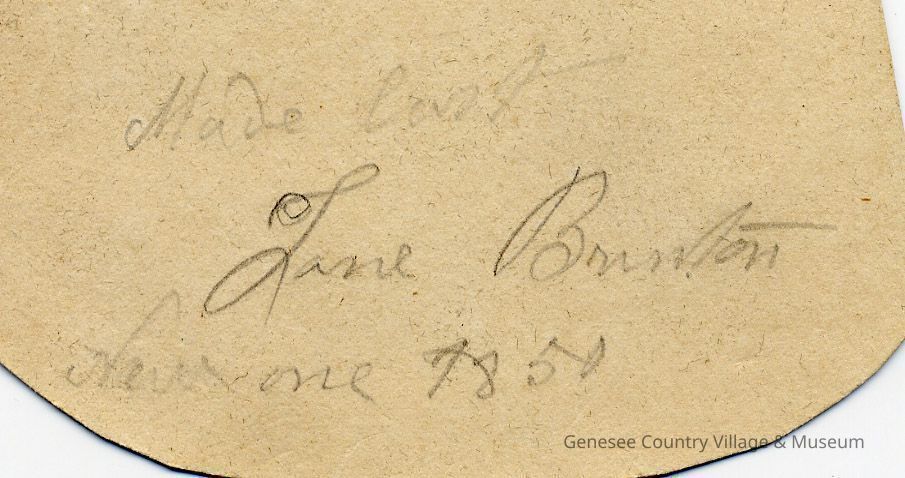 Made last
Jane Brinton
New one 1851
Genesee Country Village & Museum